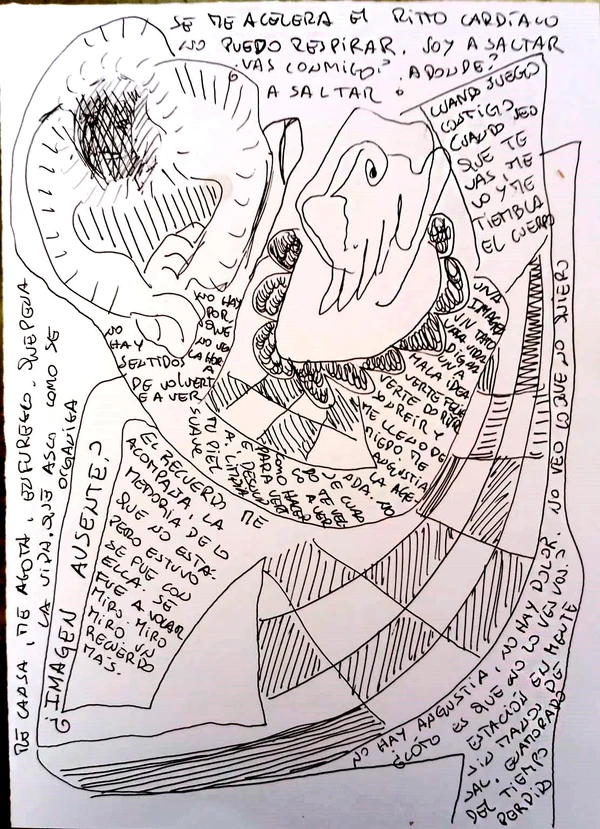 SE ME ACELERA EL RITMO CARDÍACO
NO PUEDO RESPIRAR. SOY A SALTAR
¿VAS CONMIGO? ADONDE?
A SALTAR
CUANDO JUEGO
CONTIGO
CUANDO VEO
QUE TE
VAS ME
VO Y ME
TIEMBLA
EL CUERPO
UNA
IMAGEN
UN
UNA
MALA IDEA
VERTE FELIZ
VERTE
SONREIR Y
ME LLENO DE
MIEDO. ME
ANGUSTIA
LA AGE
NO HAY
POR
QUE
NO VEO
LA HORA
DE VOLVERTE
E A VER
NO
HAY
SENTIDOS
TU PIEL
SUAVE
COMO HACER
PARA VERTE
EL RECUERDO ME
ACOMPAÑA, LA
MEMORIA DE LO
QUE NO ESTA
PERO ESTUVO
SE FUE CON
ELLA. SE
FUE A VOLAR
MIRO. MIRO
MIRO UN
RECUERDO
MAS.
¿IMAGEN AUSENTE?
ME CANSA, ME AGOTA, ENFUREZCO. QUE PENA
LA VIDA. QUE ASCO COMO SE
ORGANIZA
NO VEO LO QUE NO QUIERO
NO HAY ANGUSTIA, NO HAY DOLOR.
ES QUE NO LO VES VOS?
ESTACIÓN EN MENTE
SIN MANOS, DE
SAL. ENAMORADO
DEL TIEMPO
PERDIDO